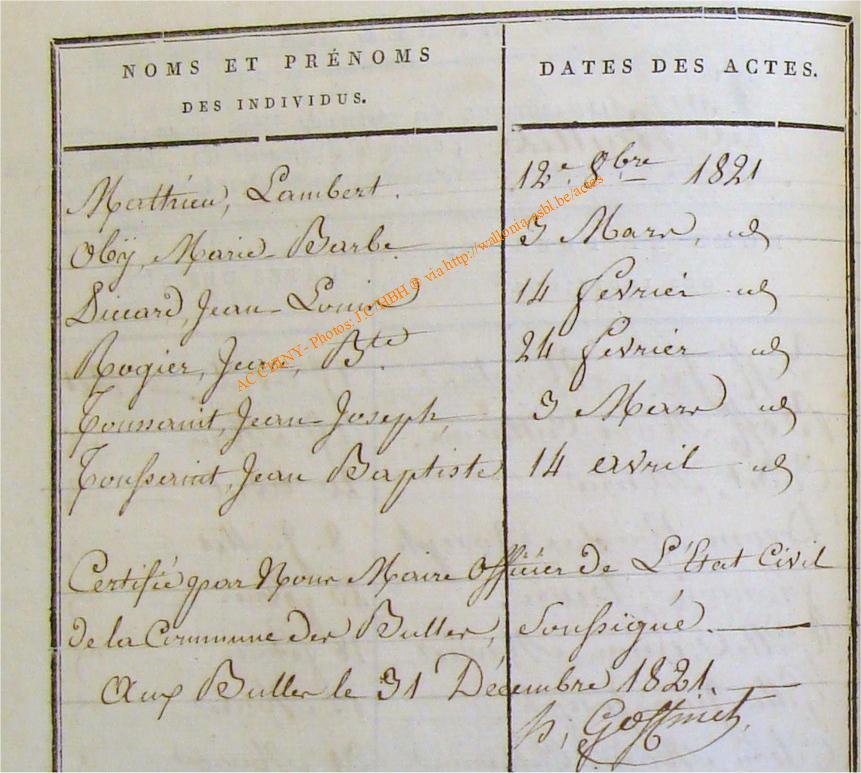 NOMS ET PRÉNOMS
DES INDIVIDUS.
DATES DES ACTES.
Mathieu, Lambert. 12e. 8bre 1821
Oby, Marie-Barbe 3 Mars, id
Jean-Louis 14 fevrier id
Rogier, Jean, Bte. 24 fevrier id
Toussaint, Jean-Joseph, 3 Mars id
Toussaint, Jean Baptiste 14 avril id
Certifié par Nous Maire Officier de L'État Civil
de la Commune des Bulles, Soussigné.
Aux Bulles le 31 Décembre 1821.
ACCHINY- Photos: J.C. HBH @ via http://wallonia-asbl.be/actes